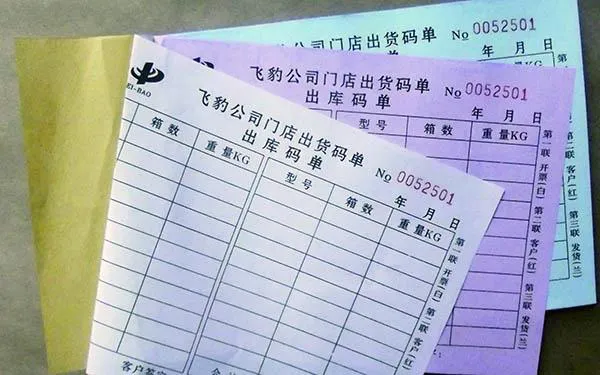 飞豹公司门店出货码单
No 0052501
年 月 日
飞豹公司门店出货码单
出库码单
No 0052501
年 月 日
型号 箱数 重量KG
第一联 开票(白) 第二联 客户(红) 第三联 发货(兰)
第一联 开票(白) 第二联 客户(红) 第三联 发货(兰)
EI-BAO
飞豹公司门店出货码单
出库码单
No 0052501
年 月 日
箱数 重量KG 型号 箱数 重量KG
第一联 开票(白) 第二联 客户
客户签